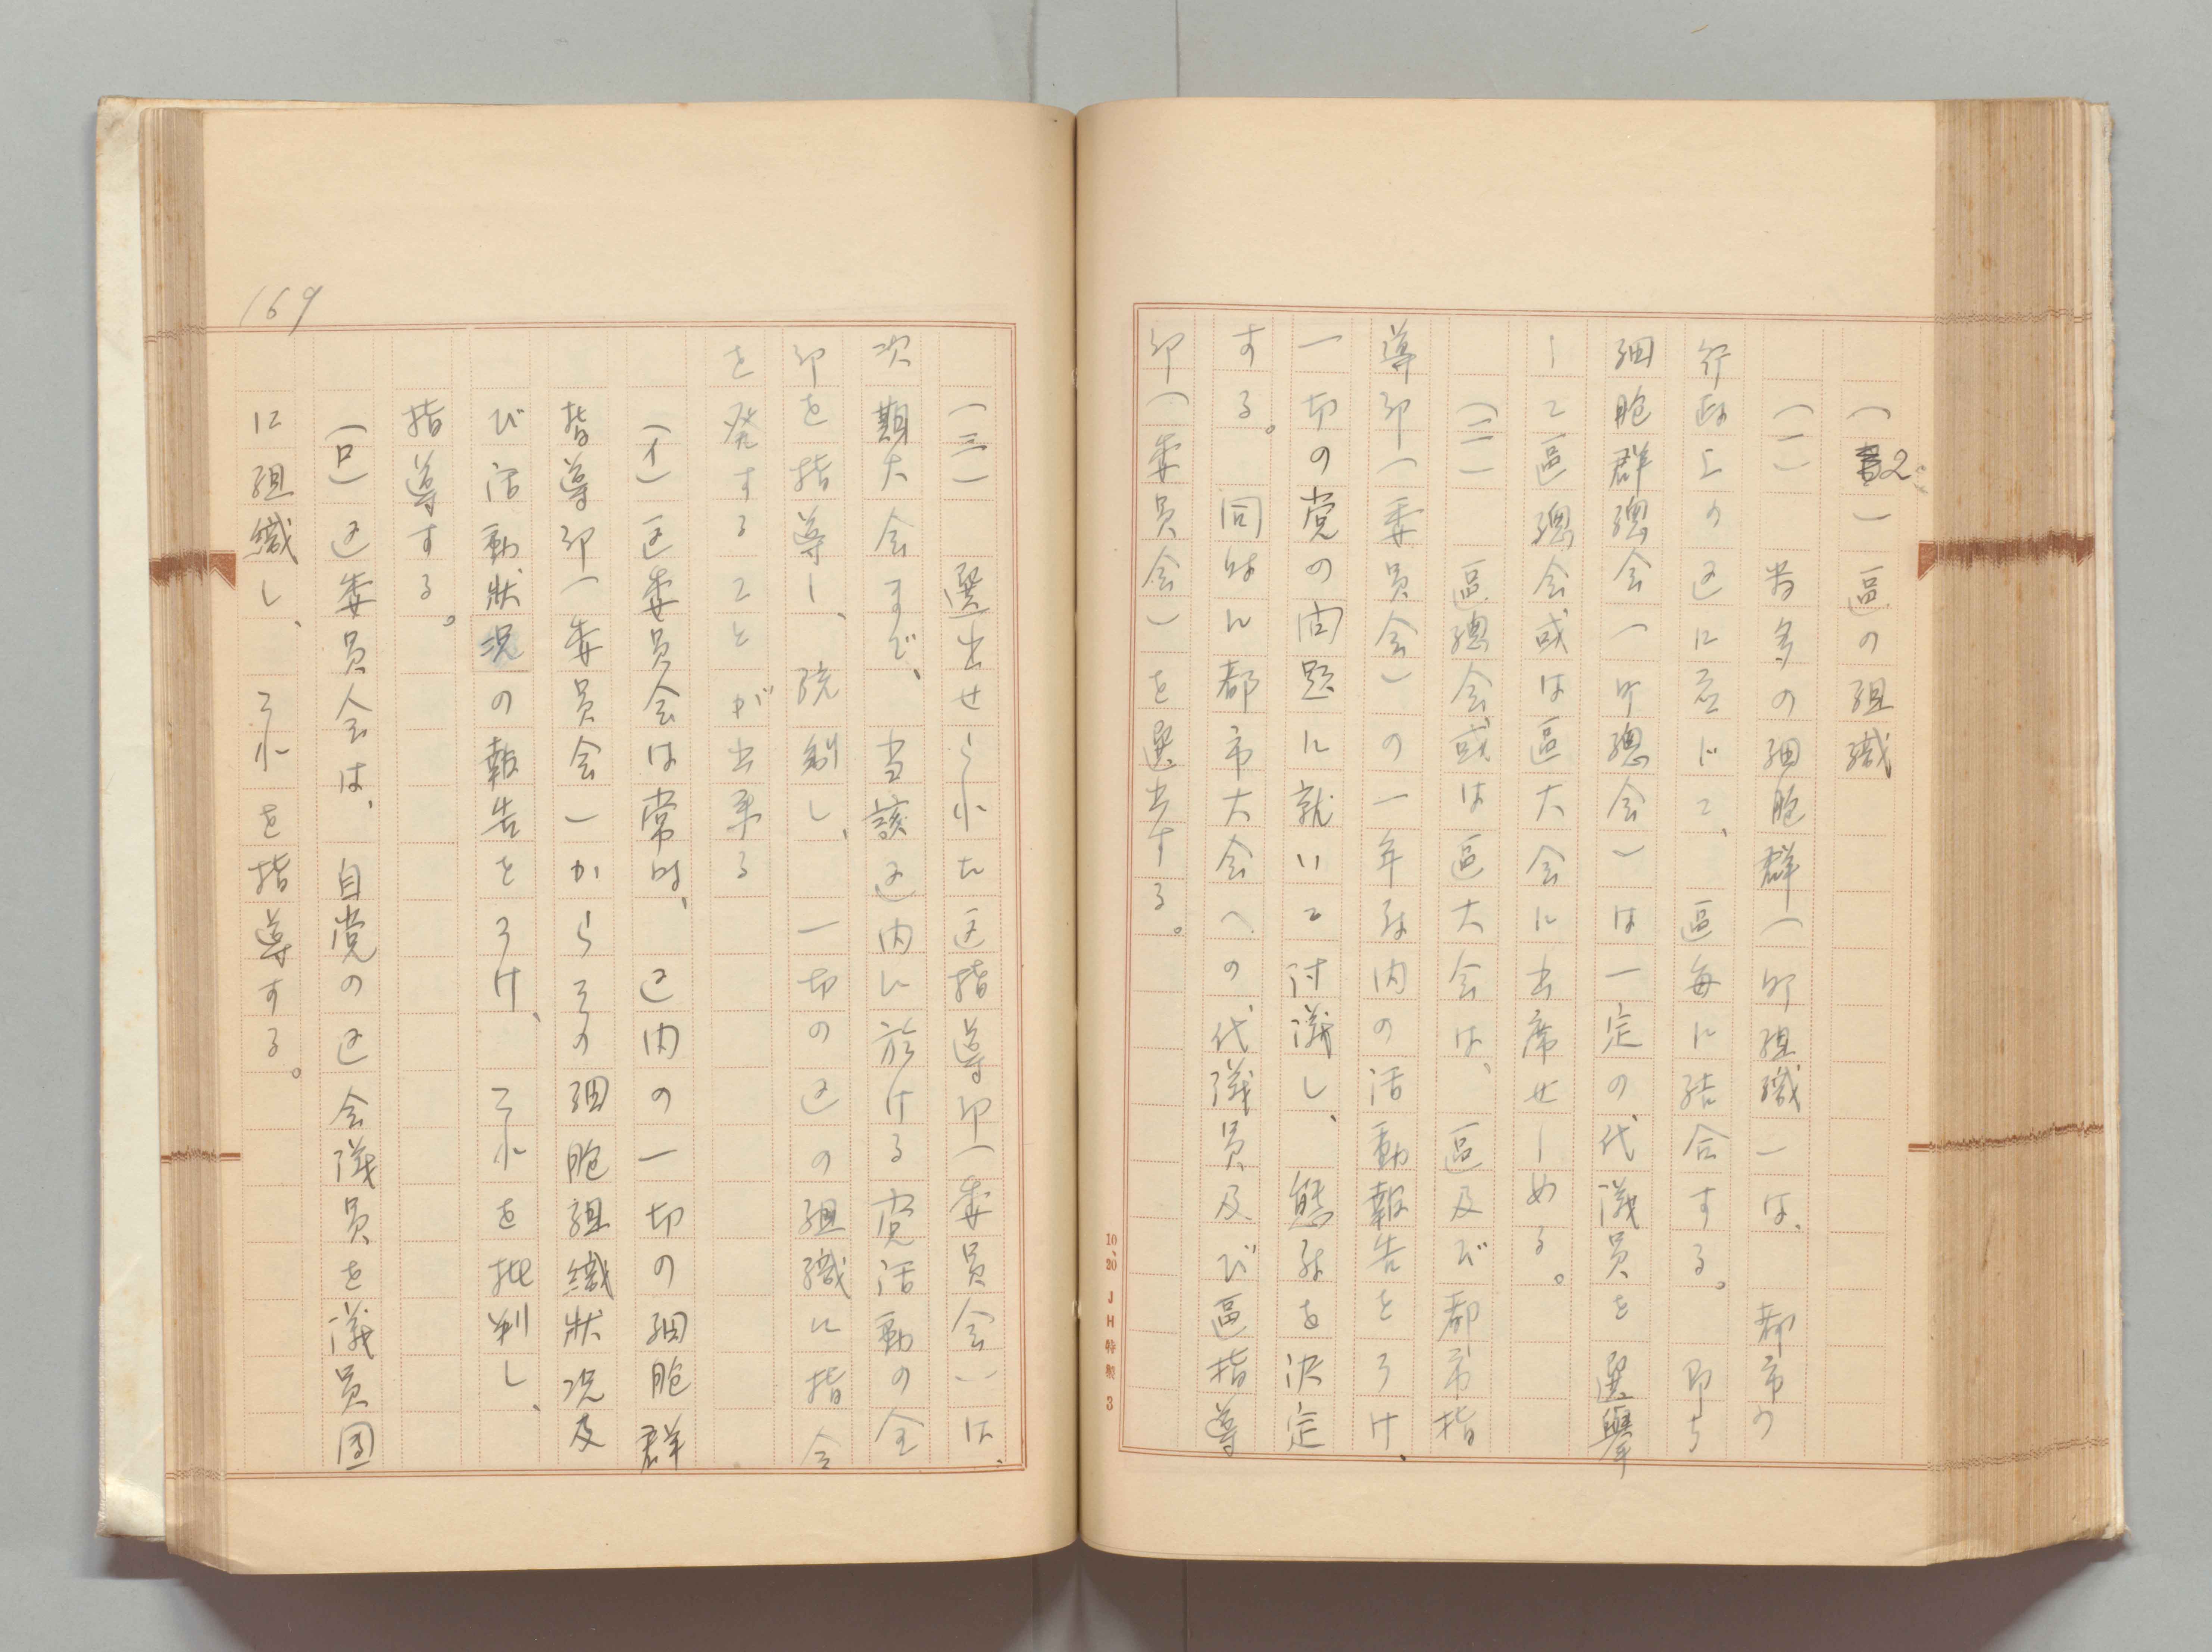 (2) 區の組織
(一) 若多の細胞群(部組織)は、都市の
行政上の区に応じて、區毎に結合する。即ち
細胞群總会(町總会)は一定の代議員を選擧
して區總会或は區大会に出席せしめる。
(二) 區總会或は區大会は、區及び都市指
導部(委員会)の一年以内の活動報告をうけ、
一切の党の問題に就いて討議し、態度を決定
する。同時に都市大会への代議員及び區指導
部(委員会)を選出する。
10.20 JH特製 3
169
(三) 選出せられた区指導部(委員会)は、
次期大会まで、当該区内に於ける党活動の全
部を指導し、統制し、一切の区の組織に指令
を発することが出来る
(イ)区委員会は常時、区内の一切の細胞群
指導部(委員会)からその細胞組織狀況及
び活動狀況の報告をうけ、これを批判し、
指導する。
(ロ)区委員会は、自党の区会議員を議員団
に組織し、これを指導する。